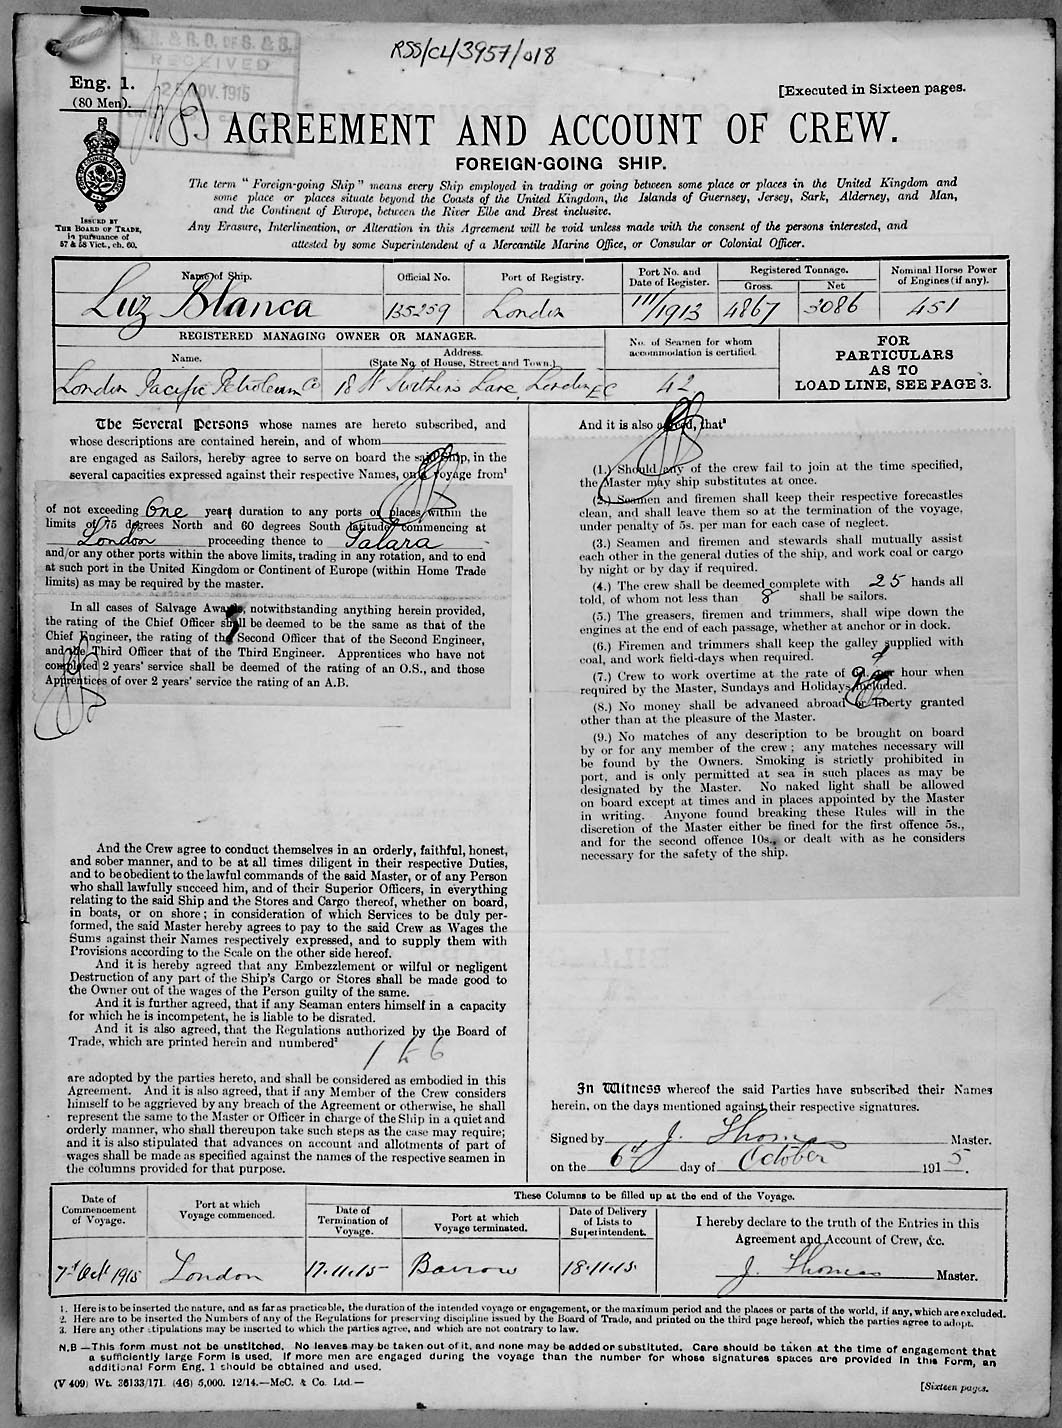 RSS/CL/3957/018
R. G. & R. O. OF S. & S.
RECEIVED
25 NOV. 1915
Eng. 1.
(80 Men).
[Executed in Sixteen pages.
AGREEMENT AND ACCOUNT OF CREW.
FOREIGN-GOING SHIP.
ISSUED BY
THE BOARD OF TRADE,
in pursuance of
57 & 58 Vict., ch. 60.
The term "Foreign-going Ship" means every Ship employed in trading or going between some place or places in the United Kingdom and
some place or places situate beyond the Coasts of the United Kingdom, the Islands of Guernsey, Jersey, Sark, Alderney, and Man,
and the Continent of Europe, between the River Elbe and Brest inclusive.
Any Erasure, Interlineation, or Alteration in this Agreement will be void unless made with the consent of the persons interested, and
attested by some Superintendent of a Mercantile Marine Office, or Consular or Colonial Officer.
Name of Ship.
Official No.
Port of Registry.
Port No. and
Date of Register.
Registered Tonnage.
Gross.
Net
Nominal Horse Power
of Engines (if any).
Luz Blanca
135259
London
111/1913
4867
3086
451
REGISTERED MANAGING OWNER OR MANAGER.
Name.
Address.
(State No. of House, Street and Town.)
No. of Seamen for whom
accommodation is certified.
FOR
PARTICULARS
AS TO
LOAD LINE, SEE PAGE 3.
London Pacific Petroleum Co
18 St Swithins Lane, London EC
42
The Several Persons whose names are hereto subscribed, and
whose descriptions are contained herein, and of whom
are engaged as Sailors, hereby agree to serve on board the said Ship, in the
several capacities expressed against their respective Names, on a voyage from¹
of not exceeding One years duration to any ports or places within the
limits of 75 degrees North and 60 degrees South latitude commencing at
London proceeding thence to Talara
and/or any other ports within the above limits, trading in any rotation, and to end
at such port in the United Kingdom or Continent of Europe (within Home Trade
limits) as may be required by the master.
In all cases of Salvage Awards, notwithstanding anything herein provided,
the rating of the Chief Officer shall be deemed to be the same as that of the
Chief Engineer, the rating of the Second Officer that of the Second Engineer,
and the Third Officer that of the Third Engineer. Apprentices who have not
completed 2 years' service shall be deemed of the rating of an O.S., and those
Apprentices of over 2 years' service the rating of an A.B.
And the Crew agree to conduct themselves in an orderly, faithful, honest,
and sober manner, and to be at all times diligent in their respective Duties,
and to be obedient to the lawful commands of the said Master, or of any Person
who shall lawfully succeed him, and of their Superior Officers, in everything
relating to the said Ship and the Stores and Cargo thereof, whether on board,
in boats, or on shore; in consideration of which Services to be duly per-
formed, the said Master hereby agrees to pay to the said Crew as Wages the
Sums against their Names respectively expressed, and to supply them with
Provisions according to the Scale on the other side hereof.
And it is hereby agreed that any Embezzlement or wilful or negligent
Destruction of any part of the Ship's Cargo or Stores shall be made good to
the Owner out of the wages of the Person guilty of the same.
And it is further agreed, that if any Seaman enters himself in a capacity
for which he is incompetent, he is liable to be disrated.
And it is also agreed, that the Regulations authorized by the Board of
Trade, which are printed herein and numbered²
1 to 6
are adopted by the parties hereto, and shall be considered as embodied in this
Agreement. And it is also agreed, that if any Member of the Crew considers
himself to be aggrieved by any breach of the Agreement or otherwise, he shall
represent the same to the Master or Officer in charge of the Ship in a quiet and
orderly manner, who shall thereupon take such steps as the case may require;
and it is also stipulated that advances on account and allotments of part of
wages shall be made as specified against the names of the respective seamen in
the columns provided for that purpose.
And it is also agreed, that³
(1.) Should any of the crew fail to join at the time specified,
the Master may ship substitutes at once.
(2.) Seamen and firemen shall keep their respective forecastles
clean, and shall leave them so at the termination of the voyage,
under penalty of 5s. per man for each case of neglect.
(3.) Seamen and firemen and stewards shall mutually assist
each other in the general duties of the ship, and work coal or cargo
by night or by day if required.
(4.) The crew shall be deemed complete with 25 hands all
told, of whom not less than 8 shall be sailors.
(5.) The greasers, firemen and trimmers, shall wipe down the
engines at the end of each passage, whether at anchor or in dock.
(6.) Firemen and trimmers shall keep the galley supplied with
coal, and work field-days when required.
(7.) Crew to work overtime at the rate of 9d per hour when
required by the Master, Sundays and Holidays included.
(8.) No money shall be advanced abroad or liberty granted
other than at the pleasure of the Master.
(9.) No matches of any description to be brought on board
by or for any member of the crew; any matches necessary will
be found by the Owners. Smoking is strictly prohibited in
port, and is only permitted at sea in such places as may be
designated by the Master. No naked light shall be allowed
on board except at times and in places appointed by the Master
in writing. Anyone found breaking these Rules will in the
discretion of the Master either be fined for the first offence 5s.,
and for the second offence 10s., or dealt with as he considers
necessary for the safety of the ship.
In Witness whereof the said Parties have subscribed their Names
herein, on the days mentioned against their respective signatures.
Signed by J. Thomas Master.
on the 6th day of October 1915.
Date of
Commencement
of Voyage.
Port at which
Voyage commenced.
These Columns to be filled up at the end of the Voyage.
Date of
Termination of
Voyage.
Port at which
Voyage terminated.
Date of Delivery
of Lists to
Superintendent.
I hereby declare to the truth of the Entries in this
Agreement and Account of Crew, &c.
7th Oct 1915
London
17.11.15
Barrow
18.11.15
J. Thomas Master.
1. Here is to be inserted the nature, and as far as practicable, the duration of the intended voyage or engagement, or the maximum period and the places or parts of the world, if any, which are excluded.
2. Here are to be inserted the Numbers of any of the Regulations for preserving discipline issued by the Board of Trade, and printed on the third page hereof, which the parties agree to adopt.
3. Here any other stipulations may be inserted to which the parties agree, and which are not contrary to law.
N.B—This form must not be unstitched. No leaves may be taken out of it, and none may be added or substituted. Care should be taken at the time of engagement that
a sufficiently large Form is used. If more men are engaged during the voyage than the number for whose signatures spaces are provided in this Form, an
additional Form Eng. 1 should be obtained and used.
(V 409) Wt. 36133/171. (46) 5,000. 12/14.—McC. & Co. Ltd.—
[Sixteen pages.